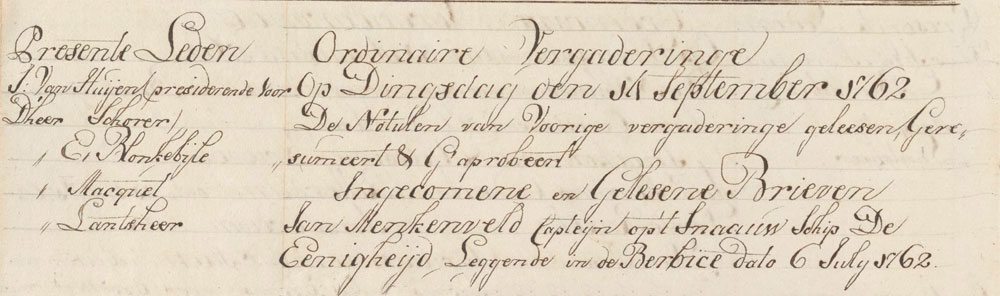 Presente Leden
J. Van Huijen (presiderende voor
Dheer Schorer)
„ E. Blonkebijle
„ Macquet
„ Lantsheer
Ordinaire Vergaderinge
Op Dingsdag den 14 September 1762
De Notulen van Voorige vergaderinge geleesen, Gere„
„sumeert & G'aprobeert
Ingecomene en Gelesene Brieven
Jan Menkenveld Capteijn op't Snaauw Schip De
Eenigheijd Leggende in de Berbice dato 6 July 1762.